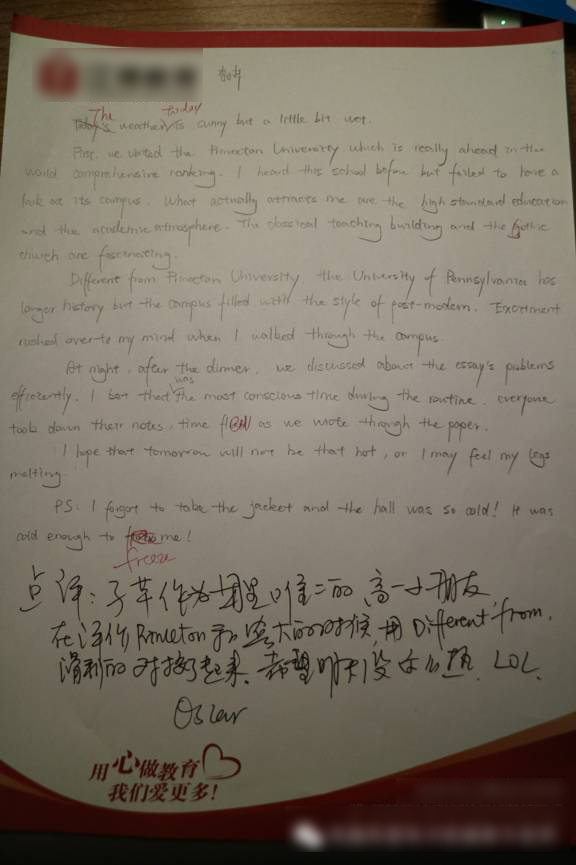 The today
Today's weather is sunny but a little bit wet.
First, we visited the Princetan University which is really ahead in the
world comprehensive ranking. I heard this school before but failed to have a
look at its campus. What actually attracts me are the high standard education
and the academic atmosphere. The classical teaching building and the gothic
church are fascinating.
Different from Princetan University, the University of Pennsylvania has
larger history but the campus filled with the style of post-modern. Excitment
rushed over to my mind when I walked through the campus.
At night, after the dinner, we discussed about the essay's problems
was
efficiently. I bet that the most conscious time during the routine, everyone
took down their notes, time as we wrote through the paper.
I hope that tomorrow will not be that hot, or I may feel my legs
melting.
PS: I forgot to take the jacket and the hall was so cold! It was
cold enough to me!
freeze
点评: 子苹作为唯二的高一小朋友
在评价 Princeton 和宾大的时候, 用 Different from,
顺利的对接了起来. 希望明天没这么热. LOL.
Oscar
用心做教育
我们爱更多!